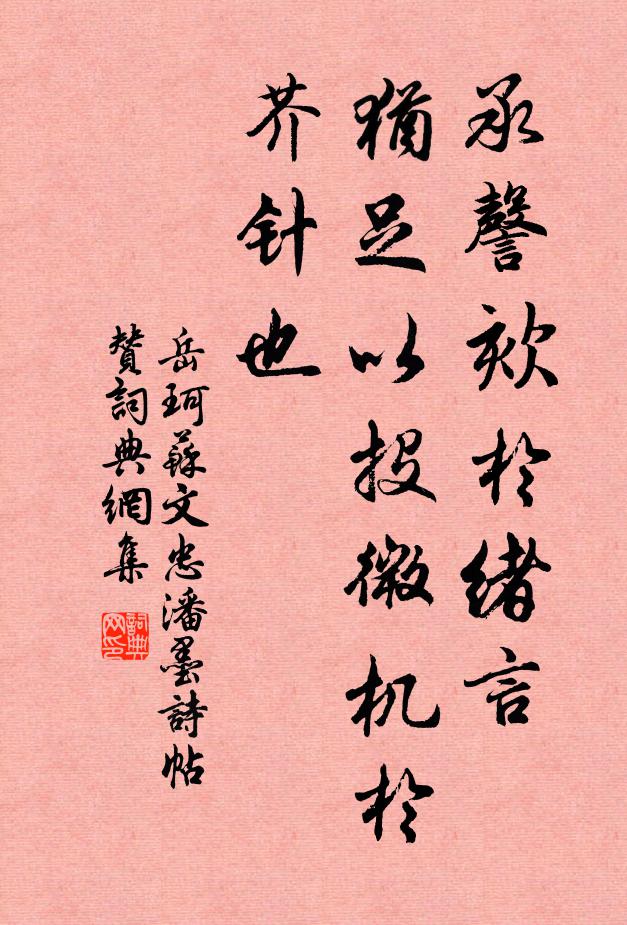 承謦欬於緒言
猶足以投微机於
芥针也
岳珂蘇文忠潘墨詩帖
贊詞典網集
詞典网印